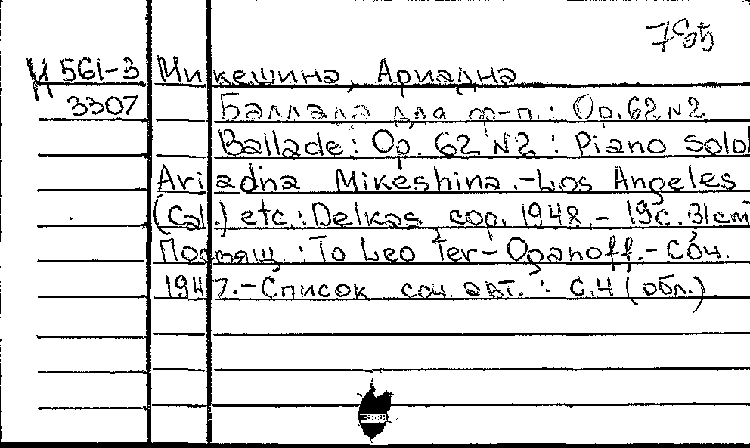 785
М 561-3 Микешина, Ариадна
3307 Баллада для ф-п.: Ор.62 №2
Ballade: Op. 62 №2 : Piano solo/
Ariadna Mikeshina.-Los Angeles
(Cal.) etc.: Delkas, cop. 1948.- 19с. 31cm
Посвящ.: To Leo Ter-Opanoff.- Соч.
1947.-Список соч. авт.: с.4 (обл.)